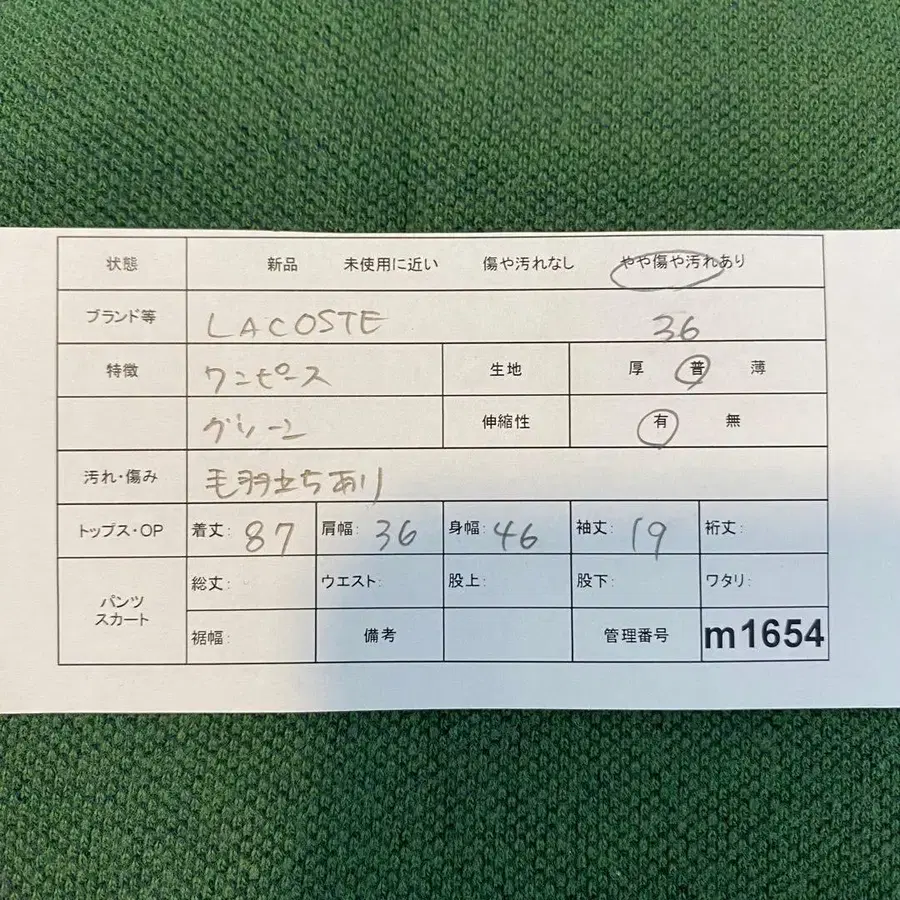 状態 新品 未使用に近い 傷や汚れなし やや傷や汚れあり
ブランド等 LACOSTE 36
特徴 ワンピース 生地 厚 普 薄
グリーン 伸縮性 有 無
汚れ・傷み 毛羽立ちあり
トップス・OP 着丈: 87 肩幅: 36 身幅: 46 袖丈: 19 裄丈:
パンツ スカート 総丈: ウエスト: 股上: 股下: ワタリ:
裾幅: 備考 管理番号 m1654